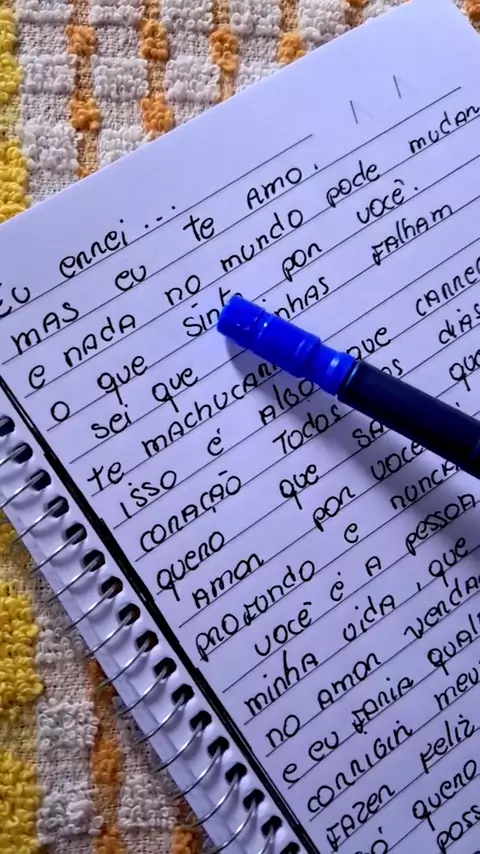 Eu errei...
mas eu te amo.
e nada no mundo pode mudar
o que sinto por você.
sei que minhas falham
te machucaram
isso é algo que carre
coração todos os dias
quero que sa que
amor por você
profundo e nunca
você é a pessoa
minha vida, que
no amor verda
e eu faria qual
corrigir meu
fazer feliz
só quero
poss